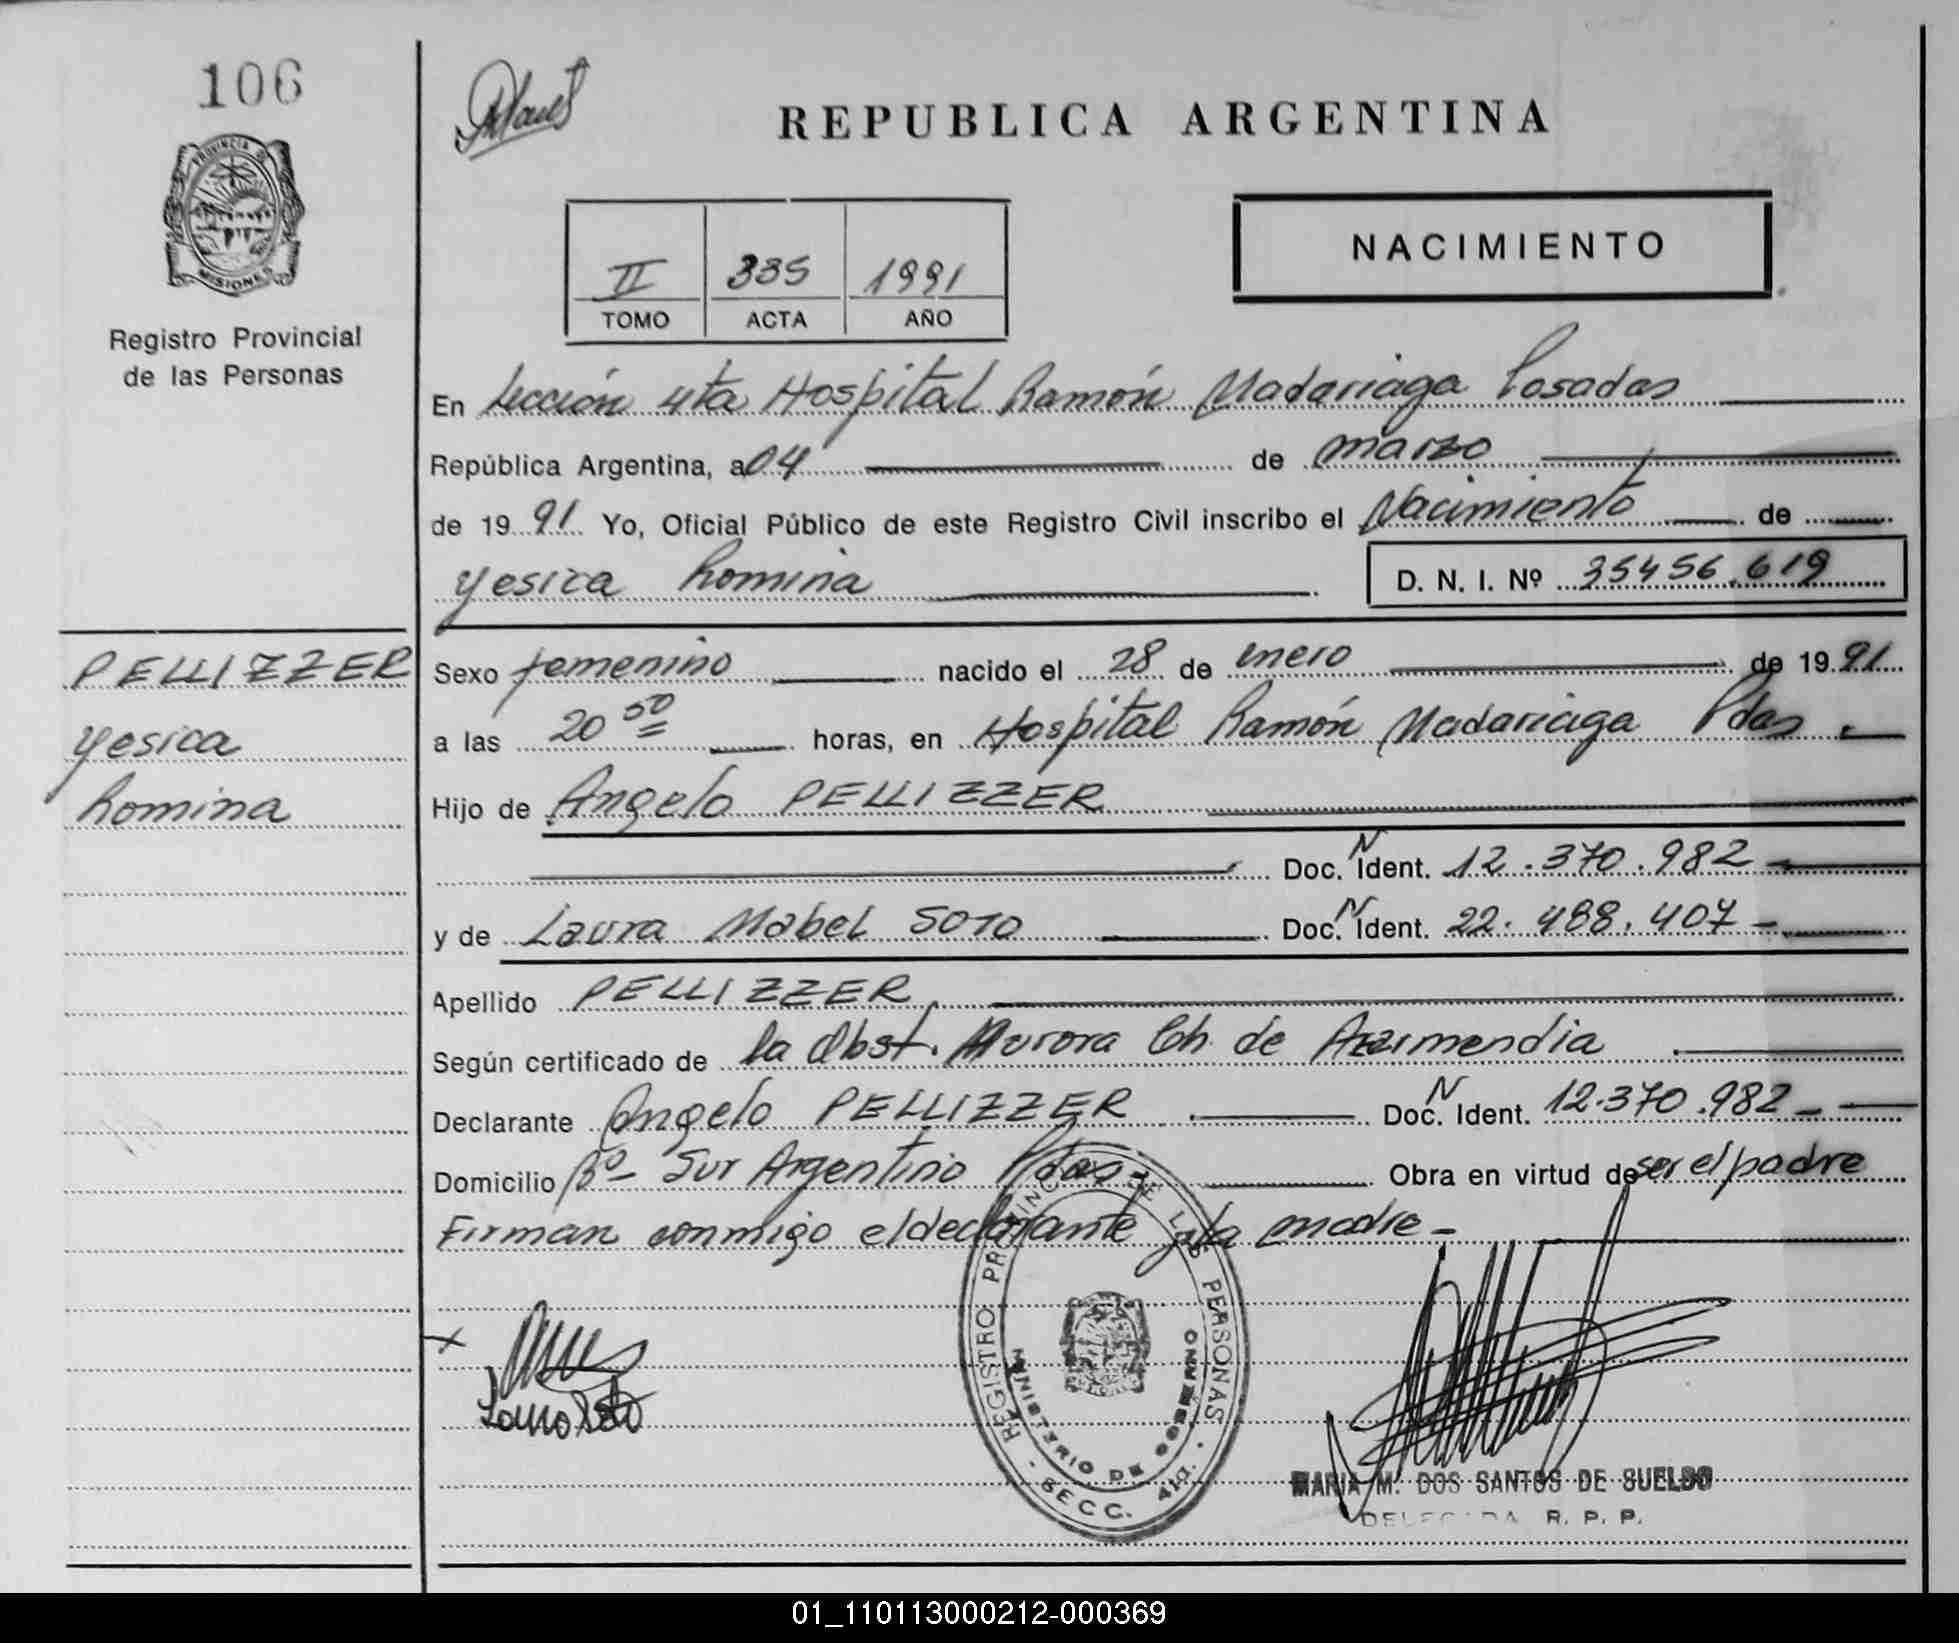 106
PROVINCIA DE
MISIONES
Registro Provincial
de las Personas
REPUBLICA ARGENTINA
NACIMIENTO
II 335 1991
TOMO ACTA AÑO
En Sección 4ta Hospital Ramón Madariaga Posadas
República Argentina, a 04 de marzo
de 19 91 Yo, Oficial Público de este Registro Civil inscribo el Nacimiento de
Yesica Romina D. N. I. Nº 35456.619
PELLIZZER
Yesica
Romina
Sexo femenino nacido el 28 de enero de 19 91
a las 20 50 horas, en Hospital Ramón Madariaga Pdas
Hijo de Angelo PELLIZZER
Doc. N Ident. 12.370.982
y de Laura Mabel SOTO Doc. N Ident. 22.488.407
Apellido PELLIZZER
Según certificado de la Obst. Aurora Ch. de Azarmendia
Declarante Angelo PELLIZZER Doc. N Ident. 12.370.982
Domicilio Bº Sur Argentino Pdas Obra en virtud de ser el padre
Firman conmigo el declarante y la madre
REGISTRO PROVINCIAL DE LAS PERSONAS
MINISTERIO DE GOBIERNO
SECC. 4ta.
MARIA M. DOS SANTOS DE SUELDO
DELEGADA R. P. P.
01_110113000212-000369